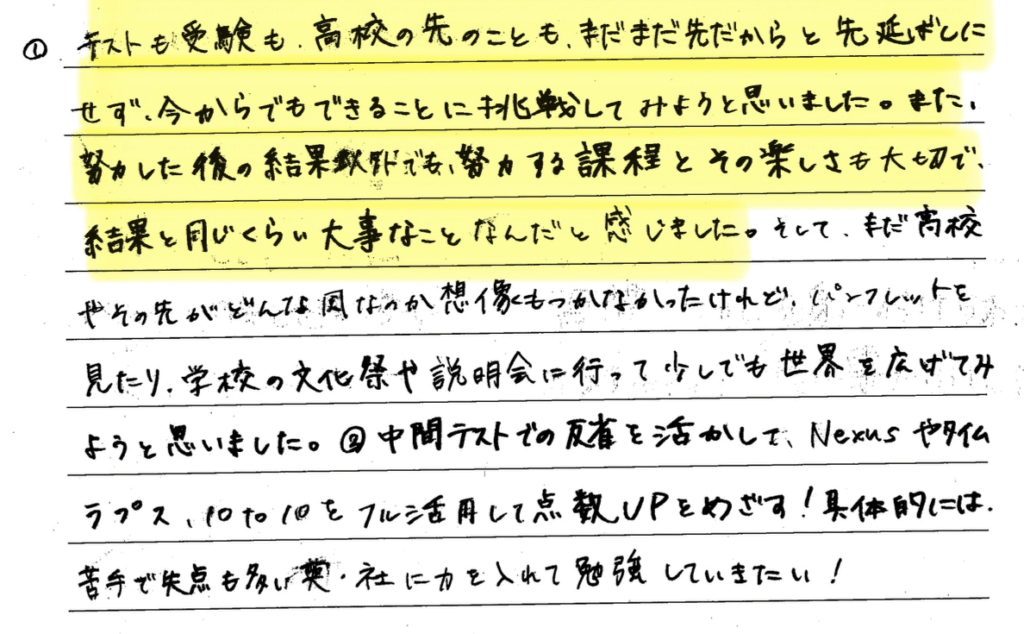 ① テストも受験も、高校の先のことも、まだまだ先だからと先延ばしに
せず、今からでもできることに挑戦してみようと思いました。また、
努力した後の結果以外でも、努力する課程とその楽しさも大切で、
結果と同じくらい大事なことなんだと感じました。そして、まだ高校
やその先がどんな風なのか想像もつかなかったけれど、パンフレットを
見たり、学校の文化祭や説明会に行って少しでも世界を広げてみ
ようと思いました。②中間テストでの反省を活かして、Nexusやタイム
ラプス、10 to 10をフル活用して点数UPをめざす！具体的には、
苦手で失点も多い英・社に力を入れて勉強していきたい！